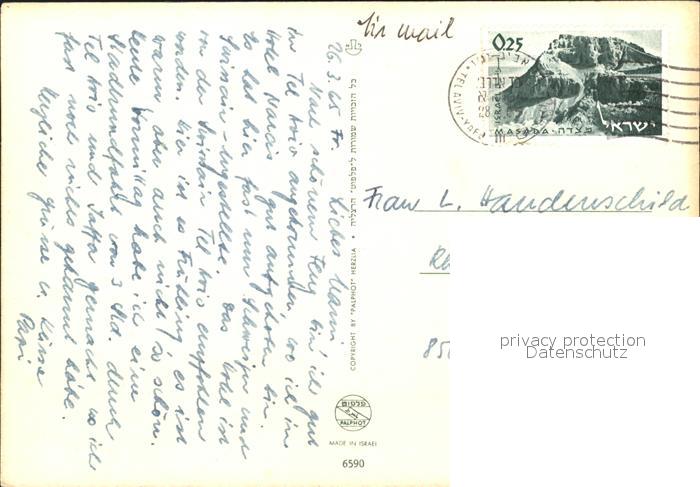 Air mail
0.25
ISRAEL
MASADA · מצדה
ישראל
TEL AVIV-YAFO
26.3.65 Fr. Liebes Mami,
Nach schönem Flug bin ich gut
in Tel Aviv angekommen, wo ich im
Hotel gut aufgehoben bin.
Es hat hier fast nur Schweizer und
Swissair-Angestellte. Das Hotel ist
von der Swissair Tel Aviv empfohlen
worden. Hier ist es Frühling es ist
warm aber auch nicht so schön.
Heute Vormittag habe ich eine
Stadtrundfahrt von 3 Std. durch
Tel Aviv und Jaffa gemacht wo ich
fast noch nichts gekannt habe.
Herzliche Grüsse u. Küsse
Papi
כל הזכויות שמורות ל״פלפוט״ הרצליה • COPYRIGHT BY "PALPHOT" HERZLIA
פלפוט
PALPHOT
MADE IN ISRAEL
6590
Frau L. Handenschild
85
privacy protection
Datenschutz